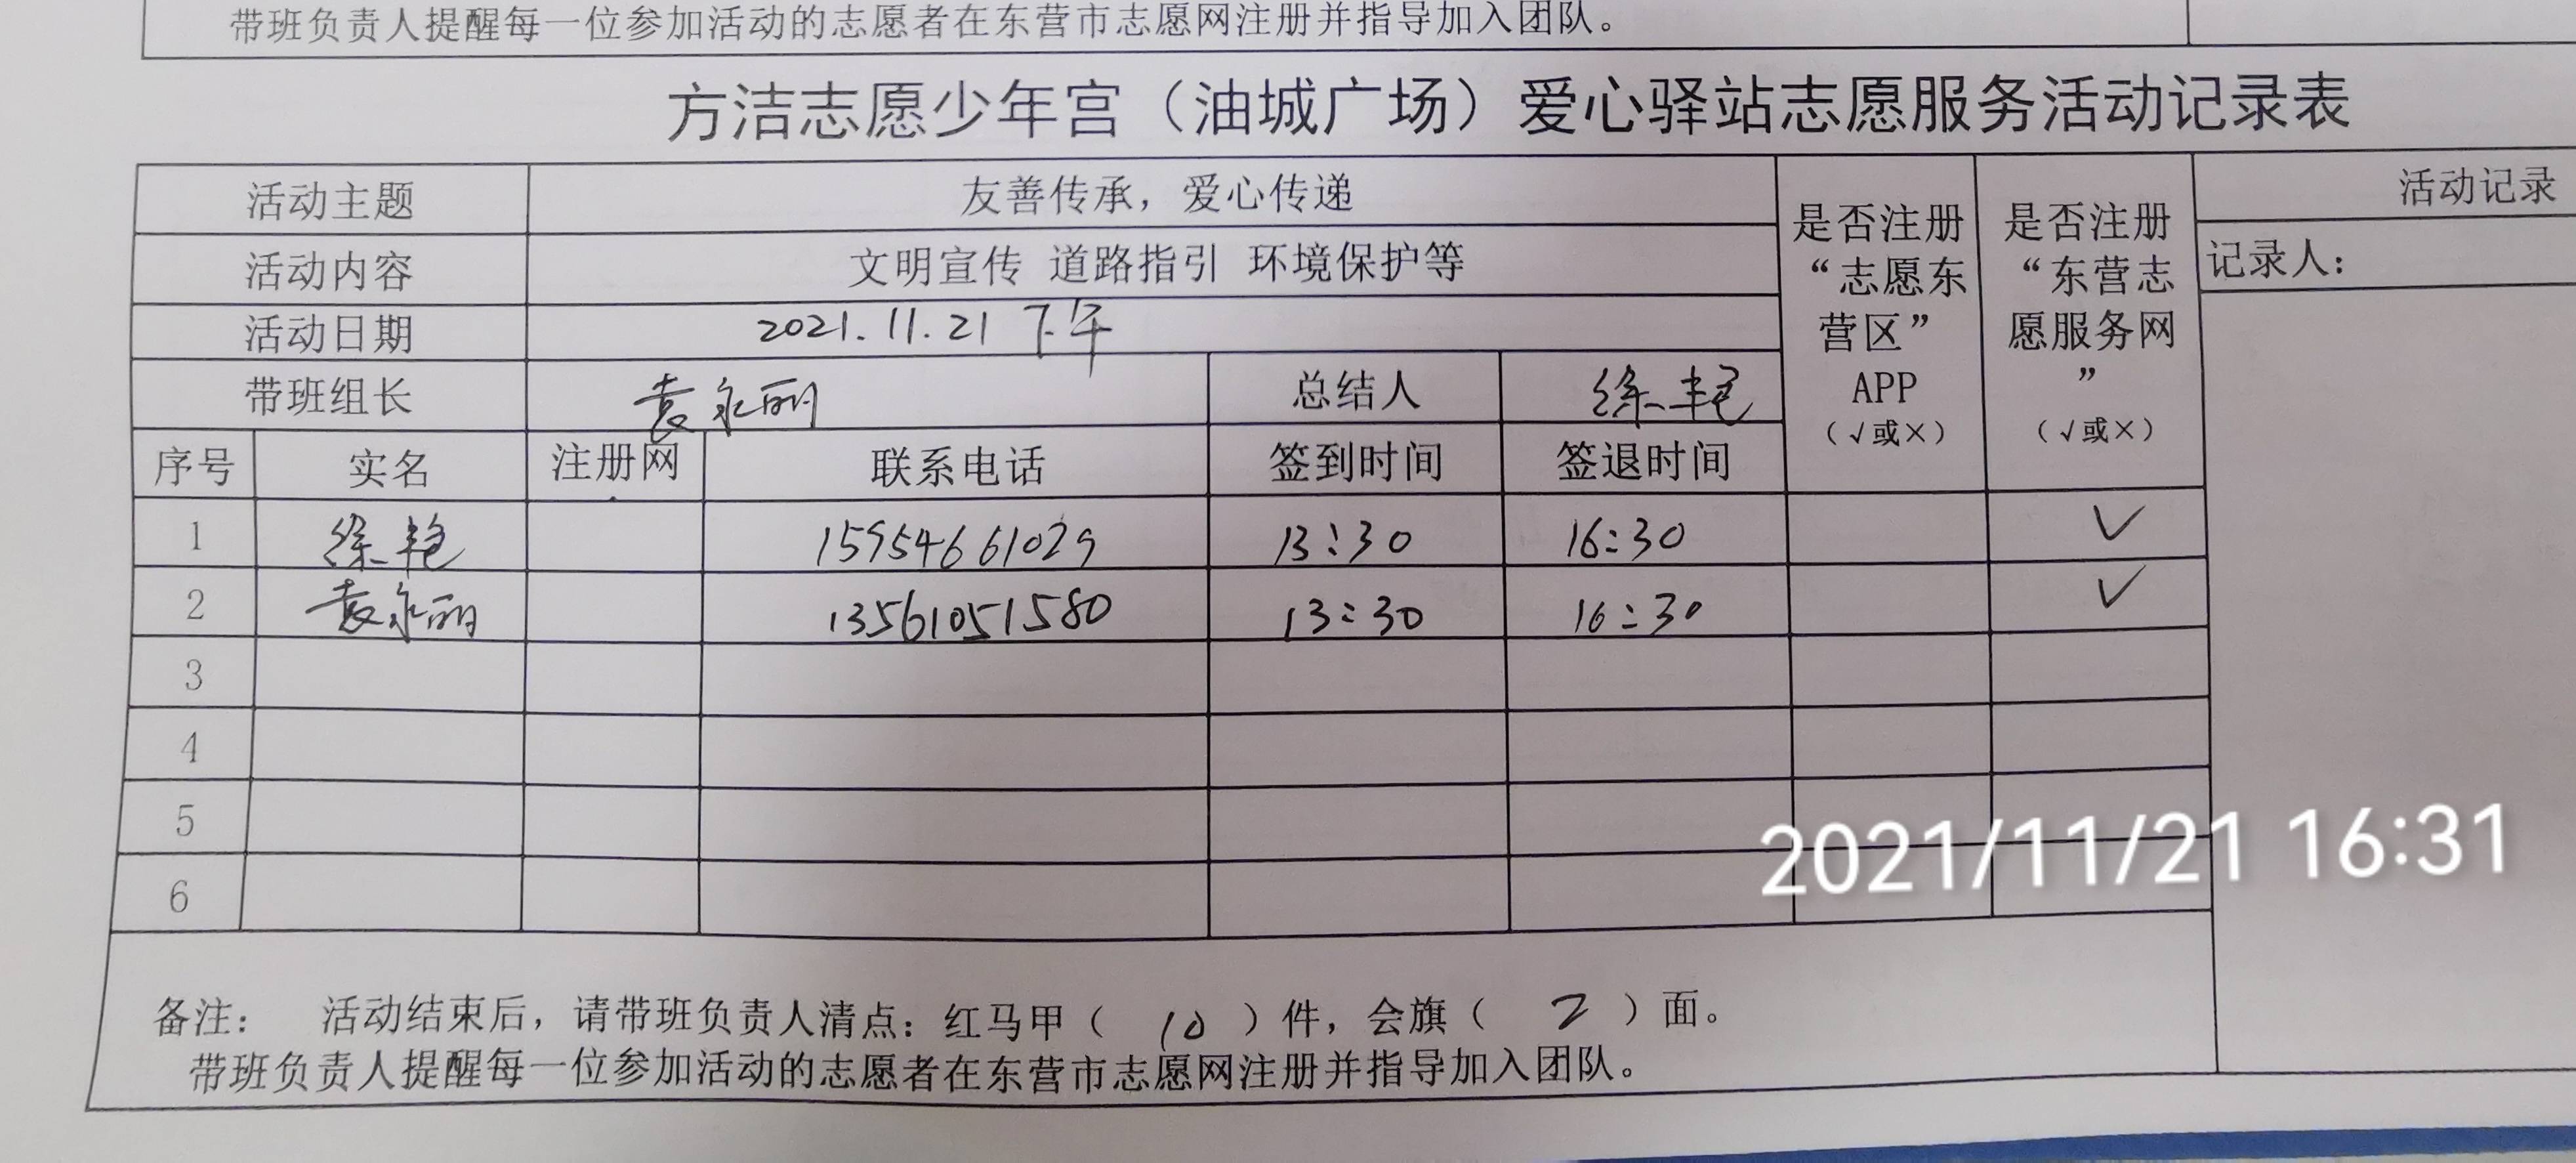 带班负责人提醒每一位参加活动的志愿者在东营市志愿网注册并指导加入团队。
方洁志愿少年宫（油城广场）爱心驿站志愿服务活动记录表
活动主题 友善传承，爱心传递
活动内容 文明宣传 道路指引 环境保护等
活动日期 2021.11.21 下午
带班组长 袁永丽 总结人 徐艳
是否注册
“志愿东
营区”
APP
（√或×）
是否注册
“东营志
愿服务网
”
（√或×）
活动记录
记录人：
序号 实名 注册网 联系电话 签到时间 签退时间
1 徐艳 15954661029 13:30 16:30 ✓
2 袁永丽 13561051580 13:30 16:30 ✓
3
4
5
6
2021/11/21 16:31
备注： 活动结束后，请带班负责人清点：红马甲（ 10 ）件，会旗（ 2 ）面。
带班负责人提醒每一位参加活动的志愿者在东营市志愿网注册并指导加入团队。